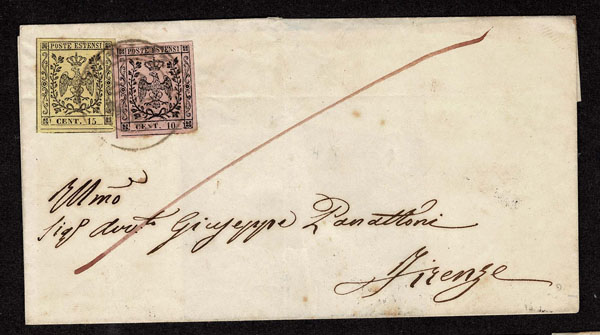 POSTE ESTENSI
CENT. 15
POSTE ESTENSI
CENT. 10
Illmo
Sigr Avvto Giuseppe Panattoni
Firenze